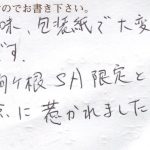 のでお書き下さい。
味、包装紙で大変
です。
駒ヶ根SA限定と
に惹かれました